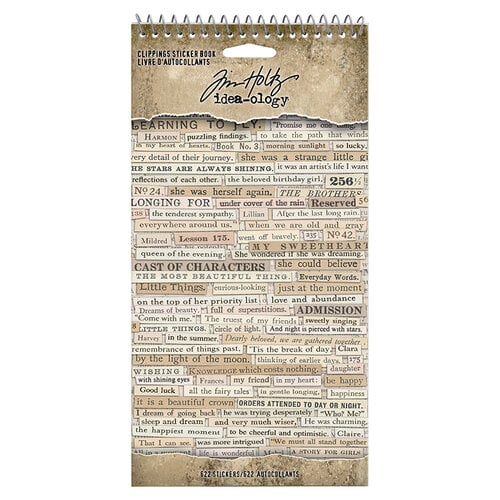 CLIPPINGS STICKER BOOK
LIVRE D'AUTOCOLLANTS
Tim Holtz
idea-ology
LEARNING TO FLY. "Promise me one
HARMON puzzling findings. to take the path that winds
in my heart of hearts. Book No. 3. morning sunlight so lucky.
very detail of their journey. she was a strange little gi
THE STARS ARE ALWAYS SHINING. it was an artist's life I want
reflections of each other. the beloved birthday girl, 256¼
No 24. she was herself again. THE BROTHERS
LONGING FOR under cover of the rain. Reserved
138 the tenderest sympathy. Lillian After the last long rain.
everywhere around us." when we are old and gray
Mildred Lesson 175. went off bravely. 235 No 42.
MY SWEETHEART
queen of the evening. She wondered if she was dreaming.
CAST OF CHARACTERS she could believe
THE MOST BEAUTIFUL THING. Everyday Words.
Little Things. curious-looking just at the moment
on the top of her priority list love and abundance
Dreams of beauty. full of superstitions. ADMISSION
"Come with me." The truest of my friends sweetly singing
LITTLE THINGS. circle of light. And night is pierced with stars.
Harvey in the summer. Dearly beloved, we are gathered together
remembrance of things past. 'Tis the break of day. Clara
by the light of the moon. thinking of earlier days. 175
WISHING KNOWLEDGE which costs nothing. daughter
with shining eyes Frances my friend in my heart: be happy
Good luck all the fairy tales in gentle longing. happiness
it is a beautiful crown ORDERS ATTENDED TO DAY OR NIGHT.
I dream of going back he was trying desperately "Who? Me!"
sleep and dream and very much wiser, He was charming.
the happiest moment to be cheerful and optimistic. Claire,
That I can see. was more intrigued "We must all stand together
A STORY FOR GIRLS
622 STICKERS/622 AUTOCOLLANTS